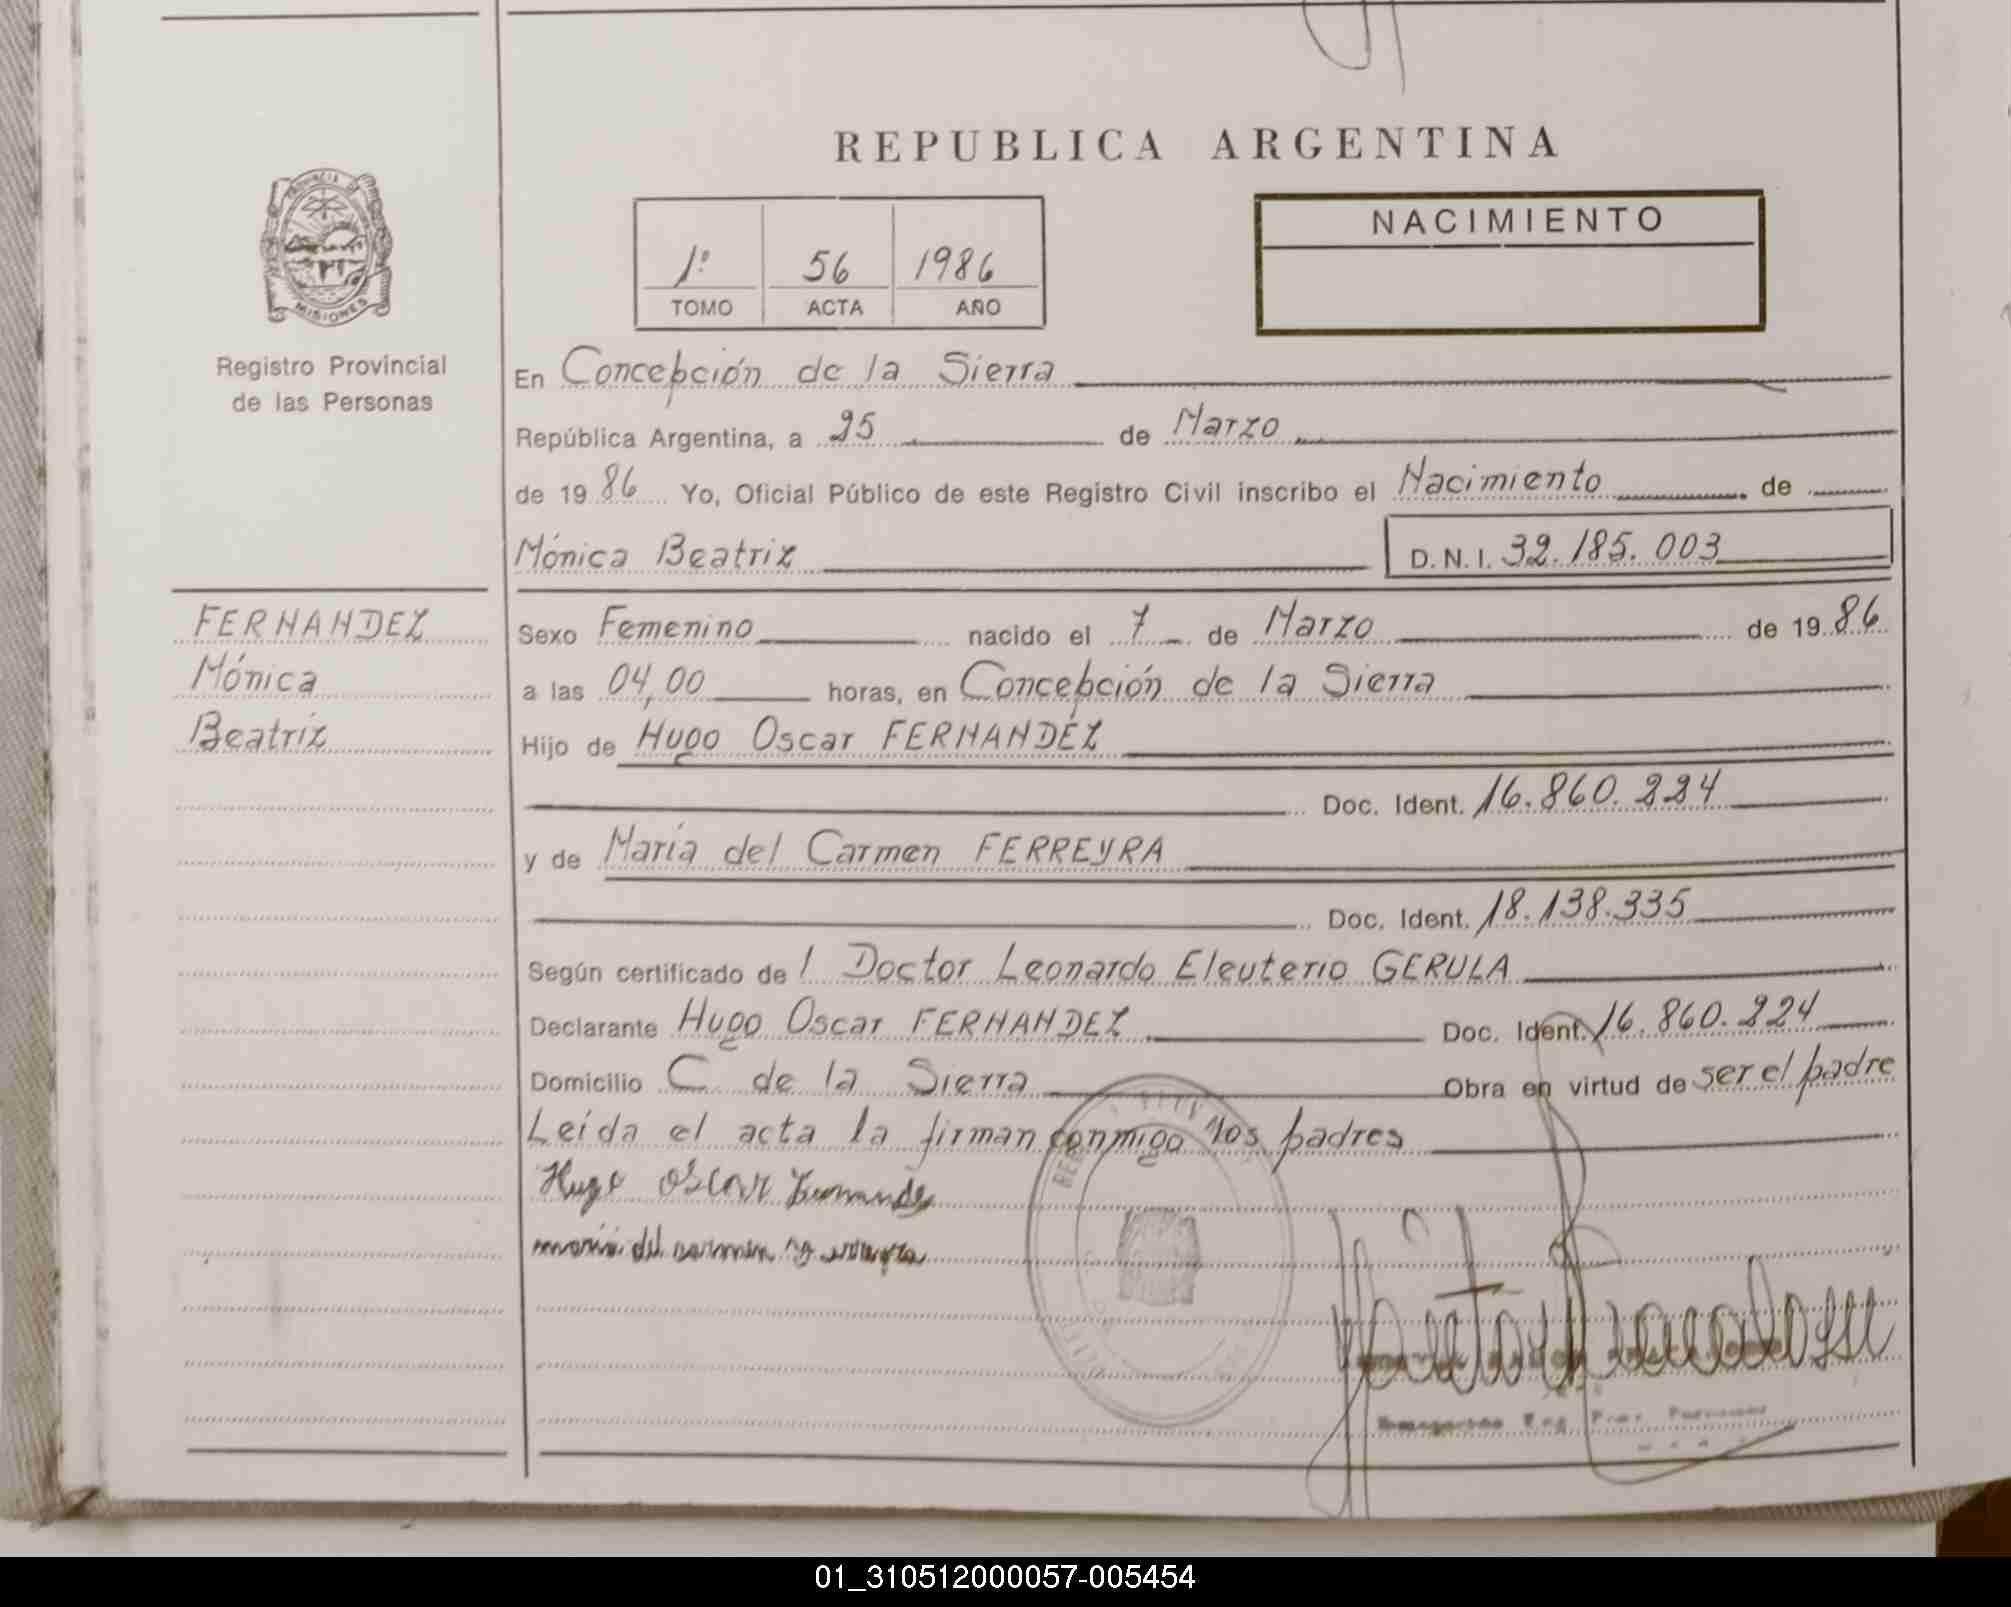 REPUBLICA ARGENTINA
PROVINCIA DE
MISIONES
Registro Provincial
de las Personas
1º 56 1986
TOMO ACTA AÑO
NACIMIENTO
En Concepción de la Sierra
República Argentina, a 25 de Marzo
de 1986 Yo, Oficial Público de este Registro Civil inscribo el Nacimiento de
Mónica Beatriz D.N.I. 32.185.003
FERNANDEZ
Mónica
Beatriz
Sexo Femenino nacido el 7 de Marzo de 1986
a las 04,00 horas, en Concepción de la Sierra
Hijo de Hugo Oscar FERNANDÉZ
Doc. Ident. 16.860.224
y de María del Carmen FERREYRA
Doc. Ident. 18.138.335
Según certificado del Doctor Leonardo Eleuterio GERULA
Declarante Hugo Oscar FERNANDEZ Doc. Ident. 16.860.224
Domicilio C de la Sierra Obra en virtud de ser el padre
Leída el acta la firman conmigo los padres
Hugo Oscar Fernandez
maria del carmen
01_310512000057-005454